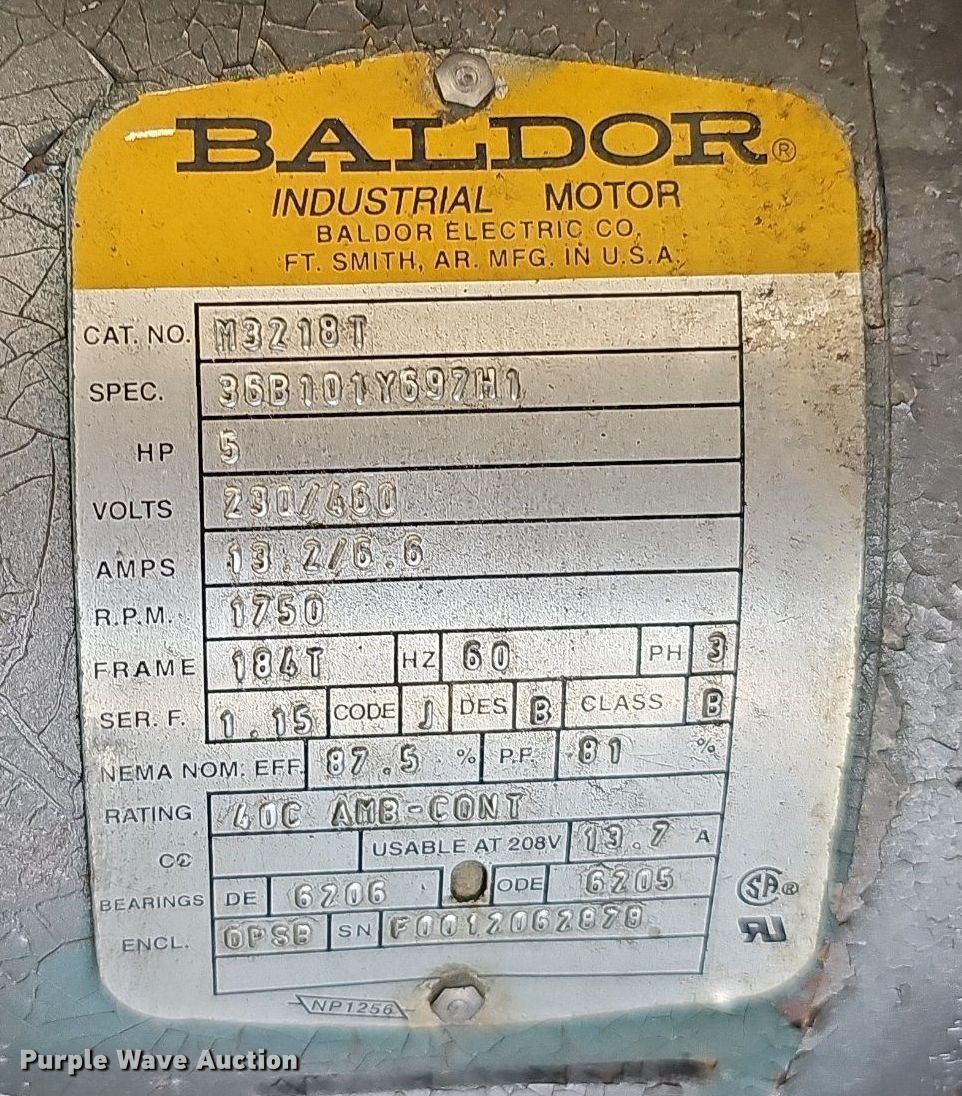 BALDOR®
INDUSTRIAL MOTOR
BALDOR ELECTRIC CO.
FT. SMITH, AR. MFG. IN U.S.A.
CAT. NO. M3218T
SPEC. 36B101Y697H1
HP 5
VOLTS 230/460
AMPS 13.2/6.6
R.P.M. 1750
FRAME 184T HZ 60 PH 3
SER. F. 1.15 CODE J DES B CLASS B
NEMA NOM. EFF. 87.5 % P.F. 81 %
RATING 40C AMB-CONT
CC USABLE AT 208V 13.7 A
BEARINGS DE 6206 ODE 6205
ENCL. OPSB SN F0012062879
NP1256
SA®
UR
Purple Wave Auction